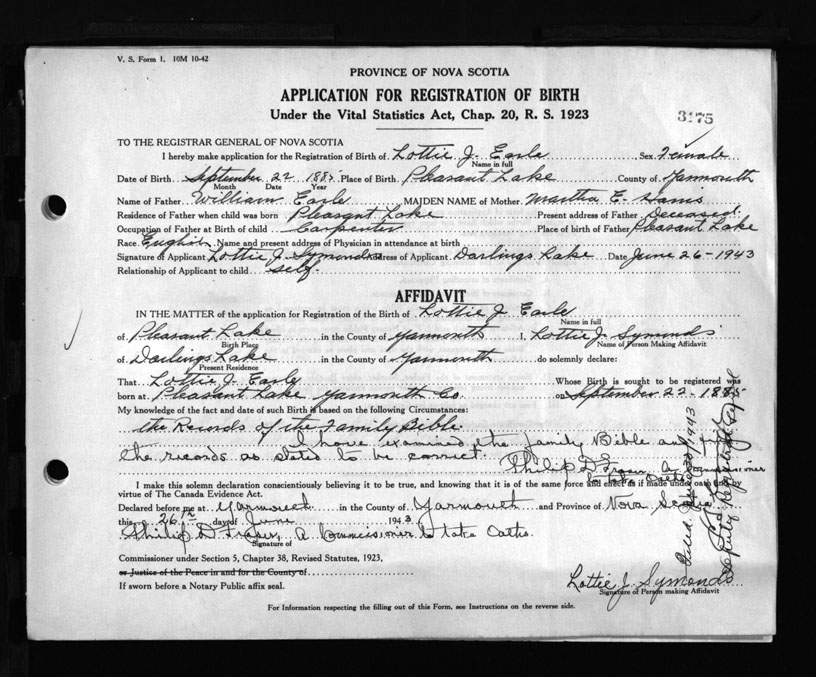 V. S. Form 1. 10M 10-42
PROVINCE OF NOVA SCOTIA
APPLICATION FOR REGISTRATION OF BIRTH
Under the Vital Statistics Act, Chap. 20, R. S. 1923
3175
TO THE REGISTRAR GENERAL OF NOVA SCOTIA
I hereby make application for the Registration of Birth of Lottie J. Earle Sex Female
Name in full
Date of Birth September 22 1885 Place of Birth Pleasant Lake County of Yarmouth
Month Date Year
Name of Father William Earle MAIDEN NAME of Mother Martha E. Harris
Residence of Father when child was born Pleasant Lake Present address of Father Deceased.
Occupation of Father at Birth of child Carpenter Place of birth of Father Pleasant Lake
Race English Name and present address of Physician in attendance at birth
Signature of Applicant Lottie J. Symonds Address of Applicant Darlings Lake Date June 26-1943
Relationship of Applicant to child self.
AFFIDAVIT
IN THE MATTER of the application for Registration of the Birth of Lottie J. Earle
Name in full
of Pleasant Lake in the County of Yarmouth I, Lottie J. Symonds
Birth Place Name of Person Making Affidavit
of Darlings Lake in the County of Yarmouth do solemnly declare:
Present Residence
That Lottie J. Earle Whose Birth is sought to be registered was
born at Pleasant Lake Yarmouth Co. on September 22-1885
My knowledge of the fact and date of such Birth is based on the following Circumstances:
the Records of the Family Bible.
I have examined the family Bible and find
the records as stated to be correct.
Philip D Fraser A Commissioner
to take Oaths
I make this solemn declaration conscientiously believing it to be true, and knowing that it is of the same force and effect as if made under oath and by
virtue of The Canada Evidence Act.
Declared before me at Yarmouth in the County of Yarmouth and Province of Nova Scotia
this 26th day of June 1943
Philip D Fraser, A Commissioner to take Oaths.
Signature of
Commissioner under Section 5, Chapter 38, Revised Statutes, 1923,
or Justice of the Peace in and for the County of
If sworn before a Notary Public affix seal.
Lottie J. Symonds
Signature of Person making Affidavit
For Information respecting the filling out of this Form, see Instructions on the reverse side.
Filed 1943
Deputy Registrar General